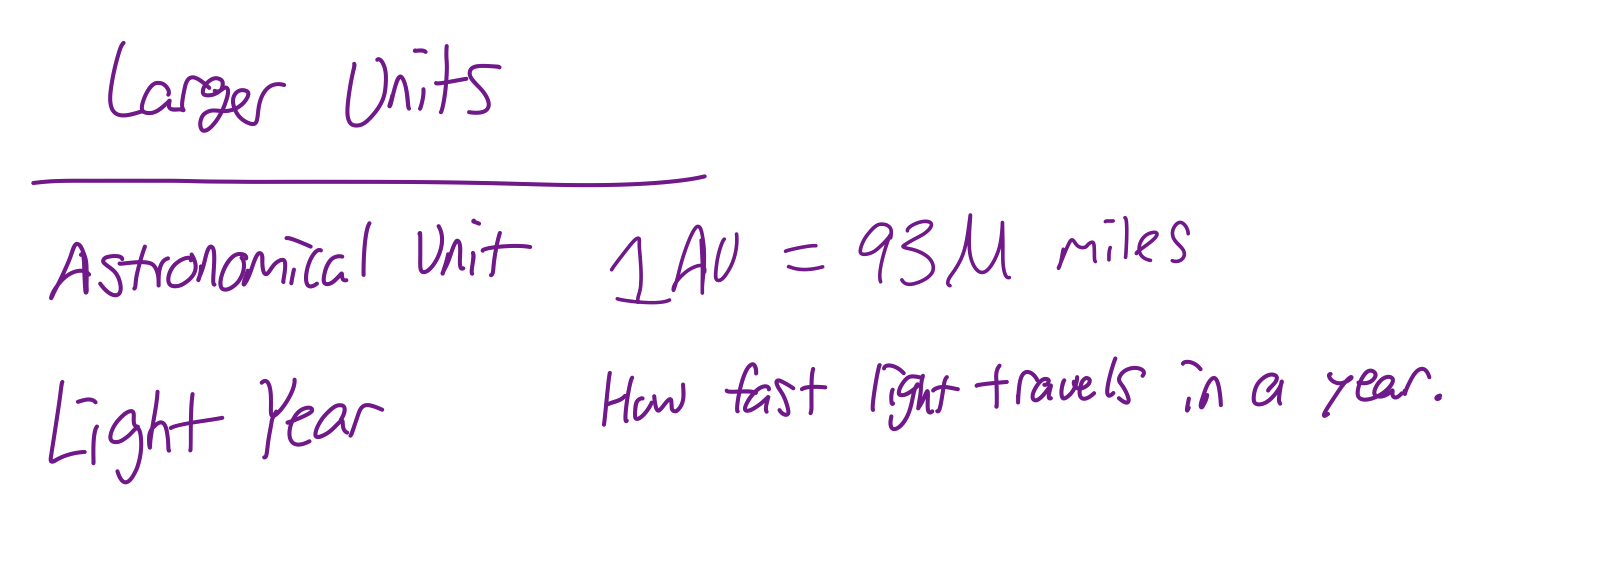 Larger Units
Astronomical Unit 1 AU = 93M miles
Light Year How fast light travels in a year.